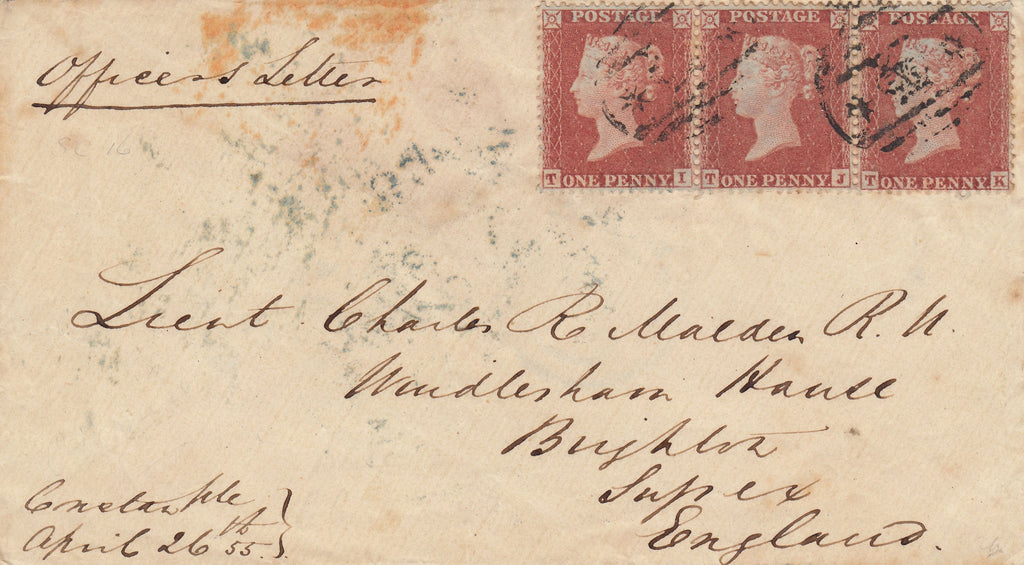 Officers Letter
POSTAGE POSTAGE POSTAGE
T ONE PENNY I T ONE PENNY J T ONE PENNY K
Lieut Charles R Malden R. N.
Windlesham House
Brighton
Sussex
England.
Constanple
April 26th 55.